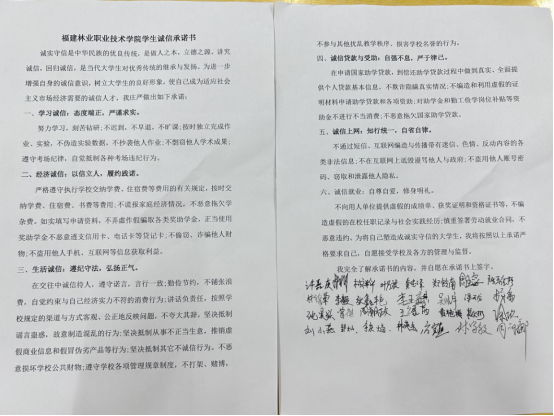 福建林业职业技术学院学生诚信承诺书
诚实守信是中华民族的优良传统，是做人之本、立德之源。讲究
诚信，回归诚信，是当代大学生对优秀传统的继承与发扬。为进一步
增强自身的诚信意识，树立大学生的良好形象，使自己成为适应社会
主义市场经济需要的诚信人才，我庄严做出如下承诺：
一、学习诚信：态度端正，严谨求实。
努力学习，刻苦钻研；不迟到，不早退，不旷课；按时独立完成作
业、实验，不伪造实验数据，不抄袭他人作业；不剽窃他人学术成果；
遵守考场纪律，自觉抵制各种考场违纪行为。
二、经济诚信：以信立人，履约践诺。
严格遵守执行学校交纳学费、住宿费等费用的有关规定，按时交
纳学费、住宿费、书费等费用；不谎报家庭经济情况，不恶意拖欠学
杂费。如实填写申请资料，不弄虚作假骗取各类奖助学金，正当使用
奖助学金不恶意透支信用卡、电话卡等贷记卡；不偷窃、诈骗他人财
物；不盗用他人手机、互联网等信息获取利益。
三、生活诚信：遵纪守法，弘扬正气。
在交往中诚信待人，遵守诺言，言行一致；勤俭节约，不铺张浪
费，自觉约束与自己经济实力不符的消费行为；讲话负责任，按照学
校规定的渠道与方式客观、公正地反映问题，不夸大其辞，坚决抵制
谣言蛊惑，故意制造混乱的行为；坚决抵制从事不正当生意、推销虚
假商业信息和假冒伪劣产品等行为；坚决抵制其它不诚信行为。不恶
意损坏学校公共财物；遵守学校各项管理规章制度，不打架、赌博、
不参与其他扰乱教学秩序、损害学校名誉的行为。
四、诚信贷款与受助：自强不息，严于律己。
在申请国家助学贷款，到偿还助学贷款过程中做到真实、全面提
供个人贷款基本信息，不欺诈隐瞒真实情况；不编造和利用虚假的证
明材料申请助学贷款和各项资助；对助学金和勤工俭学岗位补贴等资
助金不进行不当消费；不恶意拖欠国家助学贷款。
五、诚信上网：知行统一，自省自律。
不通过短信、互联网编造与传播带有迷信、色情、反动内容的各
类非法信息；不在互联网上诋毁诬骂他人与政府；不盗用他人账号密
码、窃取和泄露他人隐私。
六、诚信就业：自尊自爱，修身明礼。
不向用人单位提供虚假的成绩单、获奖证明和资格证书等，不编
造虚假的在校任职记录与社会实践经历；慎重签署劳动就业合同，不
恶意违约。为将自己塑造成诚实守信的大学生，我将按照以上承诺严
格要求自己，自愿接受学校及各方的管理与监督。
我完全了解承诺书的内容，并自愿在承诺书上签字。